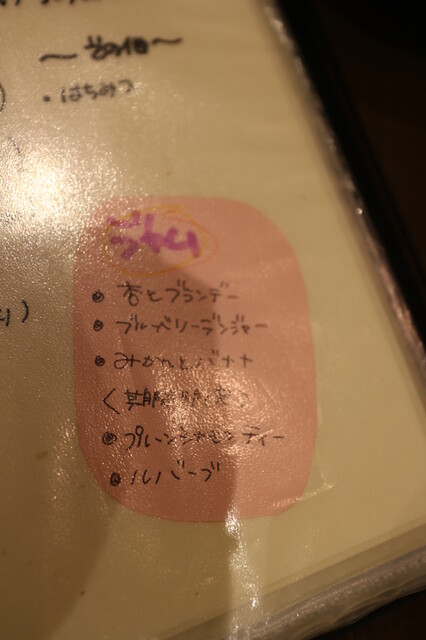 〜その他〜
・はちみつ
ジャム
・杏とブランデー
・ブルーベリージンジャー
・みかんとバナナ
〈期間限定〉
・プルーンシナモンティー
・ルバーブ